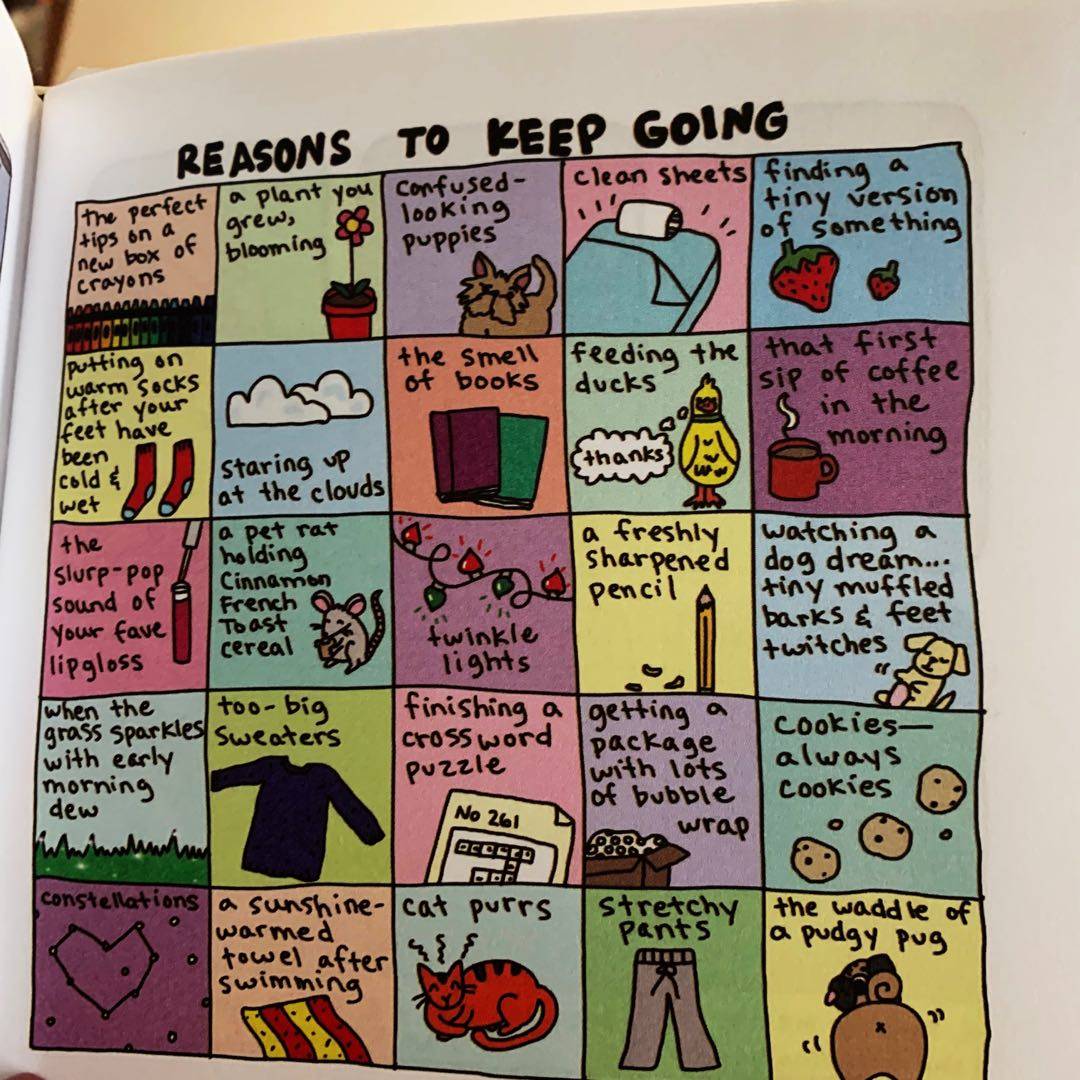 REASONS TO KEEP GOING
the perfect
tips on a
new box of
crayons
a plant you
grew,
blooming
confused-
looking
puppies
clean sheets
finding a
tiny version
of something
putting on
warm socks
after your
feet have
been
cold &
wet
staring up
at the clouds
the smell
of books
feeding the
ducks
thanks
that first
sip of coffee
in the
morning
the
slurp-pop
sound of
your fave
lipgloss
a pet rat
holding
Cinnamon
French
Toast
cereal
twinkle
lights
a freshly
sharpened
pencil
watching a
dog dream...
tiny muffled
barks & feet
twitches
when the
grass sparkles
with early
morning
dew
too-big
sweaters
finishing a
crossword
puzzle
No 261
getting a
package
with lots
of bubble
wrap
cookies—
always
cookies
constellations
a sunshine-
warmed
towel after
swimming
cat purrs
stretchy
pants
the waddle of
a pudgy pug